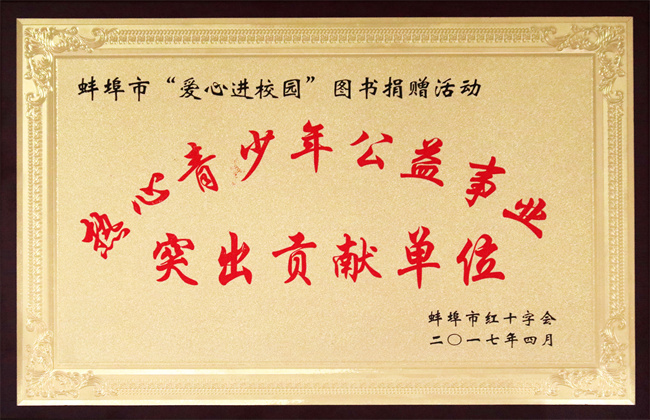 蚌埠市“爱心进校园”图书捐赠活动
热心青少年公益事业
突出贡献单位
蚌埠市红十字会
二〇一七年四月